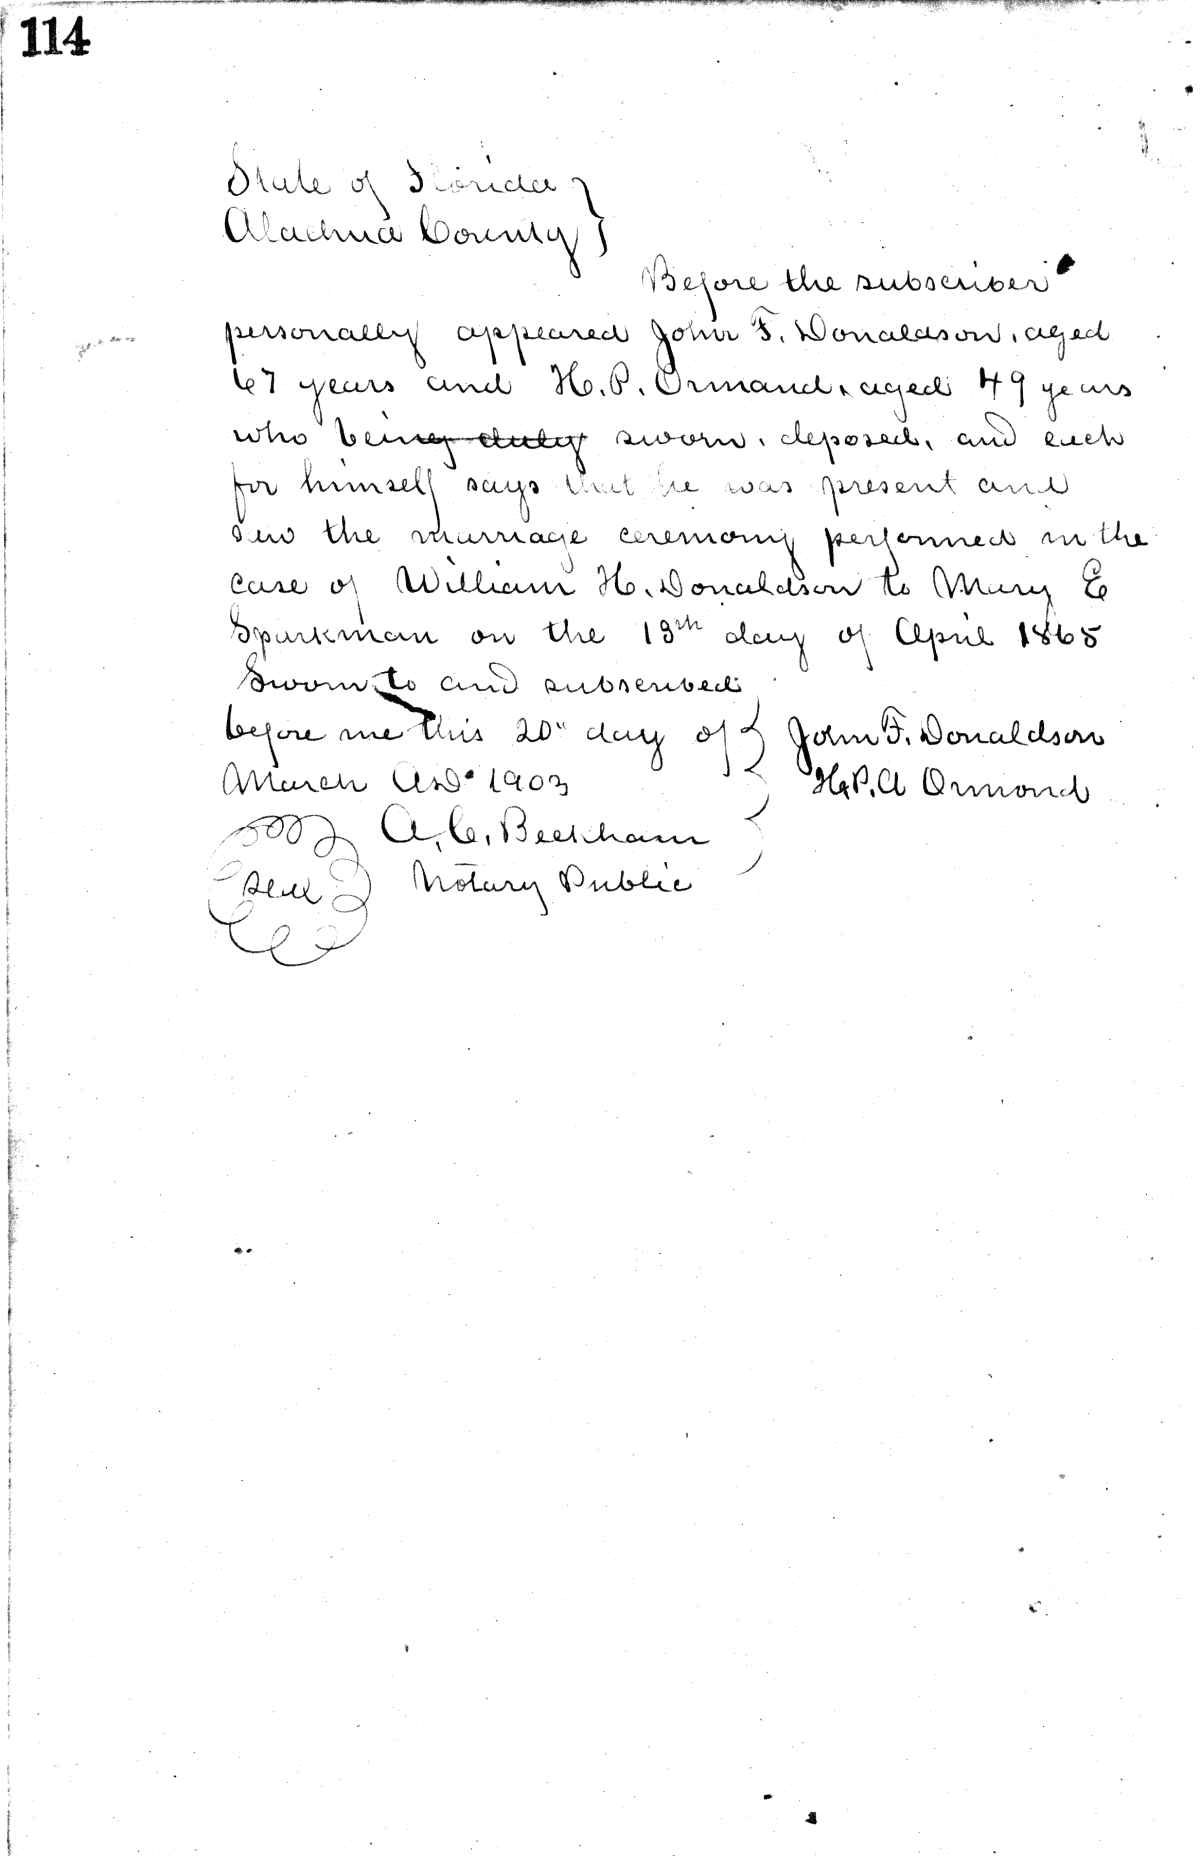 114
State of Florida
Alachua County
Before the subscriber
personally appeared John F. Donaldson, aged
67 years and H. P. Ormand, aged 49 years
who being duly sworn, deposed, and each
for himself says that he was present and
saw the marriage ceremony performed in the
case of William H. Donaldson to Mary E
Sparkman on the 13th day of April 1865
Sworn to and subscribed
before me this 20" day of John F. Donaldson
March A.D. 1903 H. P. A Ormond
A. C. Beckham
Seal Notary Public